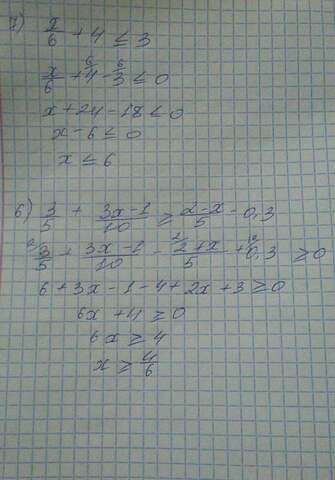 7) x/6 + 4 ≤ 3
x/6 + 4^6 - 3^6 ≤ 0
x + 24 - 18 ≤ 0
x - 6 ≤ 0
x ≤ 6
6) 3/5 + 3x-1/10 ≥ 2-x/5 - 0,3
²3/5 + 3x-1/10 - ²2+x/5 + ¹⁰0,3 ≥ 0
6 + 3x - 1 - 4 + 2x + 3 ≥ 0
6x + 4 ≥ 0
6x ≥ 4
x ≥ 4/6